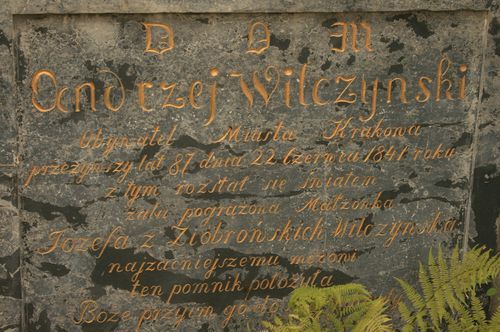 D O M
Andrzej Wilczynski
Obywatel Miasta Krakowa
przeżywszy lat 87 dnia 22 Czerwca 1841 roku
z tym rozstał się światem
żalu pogrążona Małżonka
Jozefa z Ziobrońskich Wilczyńska
najzacniejszemu mężowi
ten pomnik położyła
Boże przyim go do